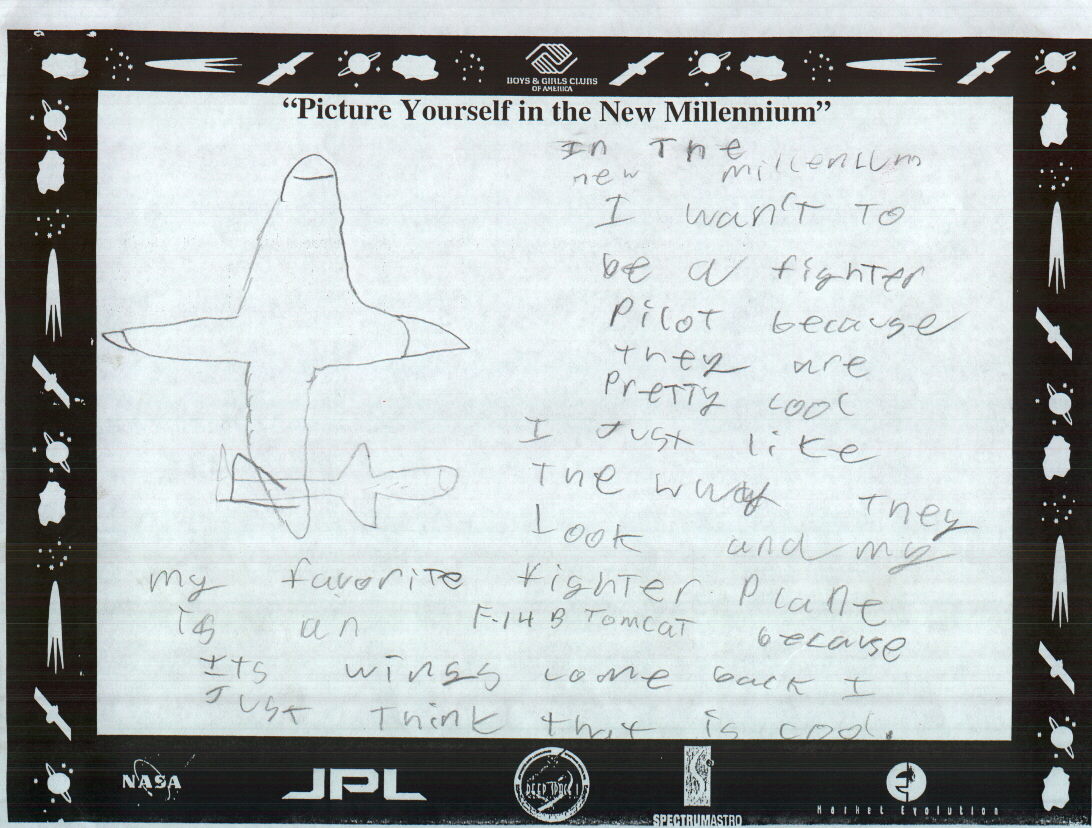 BOYS & GIRLS CLUBS
OF AMERICA
“Picture Yourself in the New Millennium”
In The
new millenium
I wan't To
be a fighter
Pilot because
they are
Pretty cool
I Just like
The way They
Look and my
my favorite fighter Plane
is an F-14 B Tomcat because
Its wings come back I
Just Think that is cool.
NASA
JPL
DEEP SPACE 1
SPECTRUMASTRO
Market Evolution